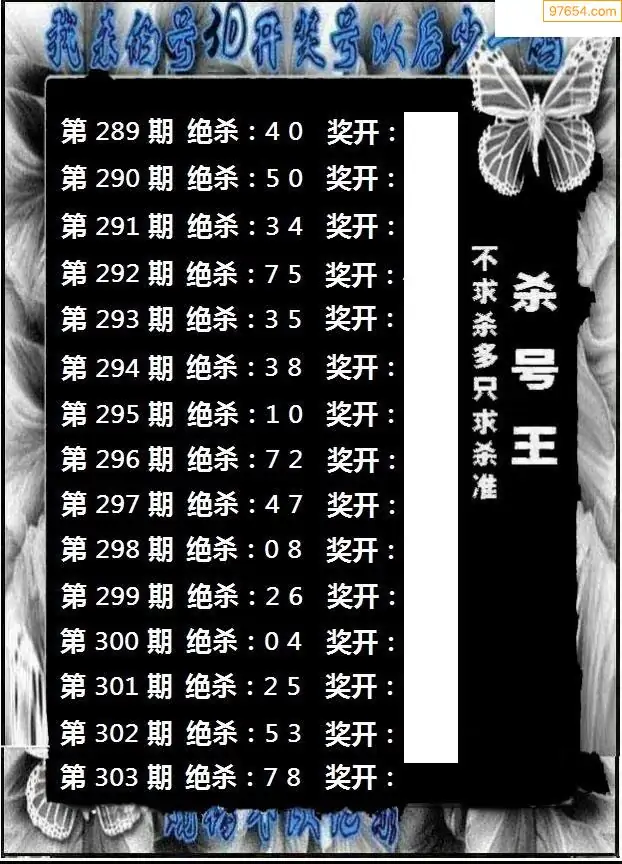 97654.com
第 289 期 绝杀：4 0 奖开：
第 290 期 绝杀：5 0 奖开：
第 291 期 绝杀：3 4 奖开：
第 292 期 绝杀：7 5 奖开：
第 293 期 绝杀：3 5 奖开：
第 294 期 绝杀：3 8 奖开：
第 295 期 绝杀：1 0 奖开：
第 296 期 绝杀：7 2 奖开：
第 297 期 绝杀：4 7 奖开：
第 298 期 绝杀：0 8 奖开：
第 299 期 绝杀：2 6 奖开：
第 300 期 绝杀：0 4 奖开：
第 301 期 绝杀：2 5 奖开：
第 302 期 绝杀：5 3 奖开：
第 303 期 绝杀：7 8 奖开：
杀号王
不求杀多只求杀准